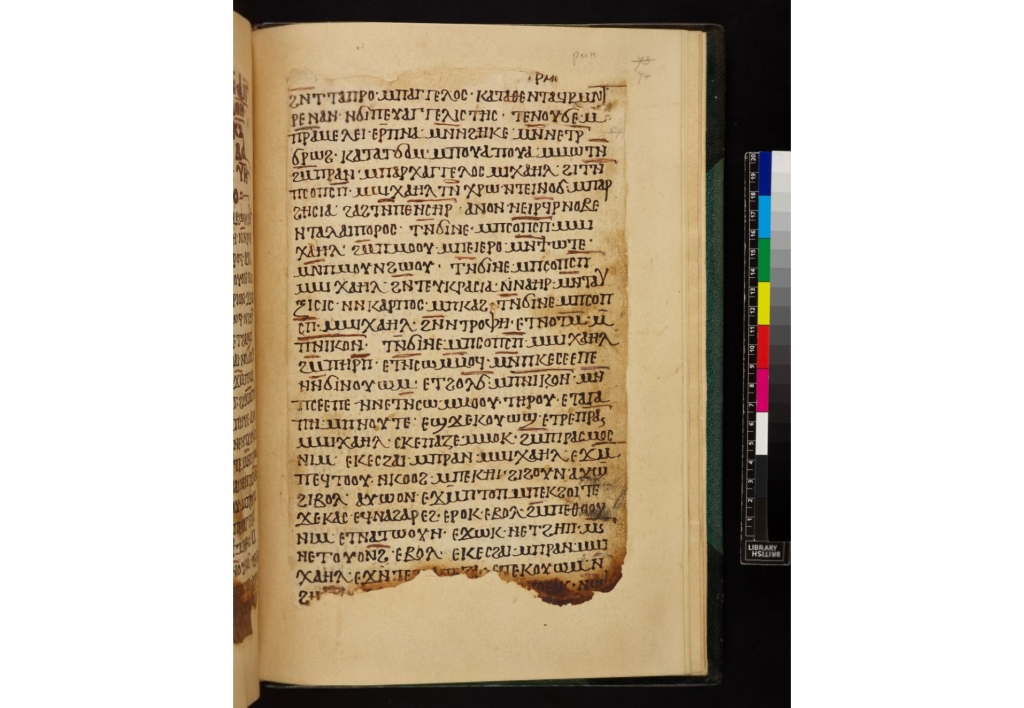 ⲣⲙⲏ
94
· ⲣⲙⲏ
ϩⲛⲧⲧⲁⲡⲣⲟ· ⲙⲡⲁⲅⲅⲉⲗⲟⲥ· ⲕⲁⲧⲁⲑⲉ
ⲣⲉⲛⲁⲛ· ⲛϭⲓⲡⲉⲩⲁⲅⲅⲉⲗⲓⲥⲧⲏⲥ· ⲧⲉⲛⲟⲩϭⲉ
ⲉⲣⲡⲛⲁ ⲙⲛⲛϩⲏⲕⲉ ⲙⲛⲛⲉⲧⲣ
ϭⲣⲱϩ· ⲕⲁⲧⲁⲧϭⲟⲙ ⲙⲡⲟⲩⲁ ⲡⲟⲩⲁ ⲙⲙⲱⲧⲛ
ϩⲙⲡⲣⲁⲛ· ⲙⲡⲁⲣⲭⲁⲅⲅⲉⲗⲟⲥ ⲙⲓⲭⲁⲏⲗ ϩⲓⲧⲛ
ⲡⲥⲟⲡⲥⲡ· ⲙⲙⲓⲭⲁⲏⲗ ⲧⲛ ⲭⲣⲱ ⲛⲧⲉⲓⲛⲟϭ ⲙⲡⲁⲣ
ϩⲏⲥⲓⲁ ϩⲁϩⲧⲛⲡⲉⲛⲥⲏⲣ· ⲁⲛⲟⲛ ⲛⲉⲓⲣⲉϥⲣⲛⲟⲃⲉ
ⲛⲧⲁⲗⲁⲓⲡⲟⲣⲟⲥ· ⲧⲛϭⲓⲛⲉ· ⲙⲡⲥⲟⲡⲥⲡ ⲙⲙⲓ
ⲭⲁⲏⲗ· ϩⲙⲡⲙⲟⲟⲩ ⲙⲡⲉⲓⲉⲣⲟ ⲙⲛϯⲱⲧⲉ·
ⲙⲛⲡⲙⲟⲩⲛϩⲱⲟⲩ· ⲧⲛϭⲓⲛⲉ ⲙⲡⲥⲟⲡⲥⲡ
ⲙⲙⲓⲭⲁⲏⲗ ϩⲛⲧⲉⲩⲕⲣⲁⲥⲓⲁ ⲛⲛⲁⲏⲣ· ⲙⲛⲧⲁⲩ
ⲝⲓⲥⲓⲥ· ⲛⲛⲕⲁⲣⲡⲟⲥ· ⲙⲡⲕⲁϩ· ⲧⲛϭⲓⲛⲉ ⲙⲡⲥⲟⲡ
ⲥⲡ· ⲙⲙⲓⲭⲁⲏⲗ· ϩⲛⲛⲧⲣⲟⲫⲏ· ⲉⲧⲛⲟⲧⲙ· ⲙ
ⲡⲛⲓⲕⲟⲛ· ⲧⲛϭⲓⲛⲉ ⲙⲡⲥⲟⲡⲥⲡ· ⲙⲙⲓⲭⲁⲏⲗ
ϩⲙⲡⲏⲣⲡ· ⲉⲧⲛⲥⲱ ⲙⲙⲟϥ· ⲙⲛⲡⲕⲉⲥⲉⲉⲡⲉ
ⲛⲛϭⲓⲛⲟⲩⲱⲙ· ⲉⲧϩⲟⲗϭ ⲙⲡⲛⲓⲕⲟⲛ· ⲙⲛ
ⲡⲥⲉⲉⲡⲉ ⲛⲛⲉⲧⲛⲥⲱ ⲙⲙⲟⲟⲩ· ⲧⲏⲣⲟⲩ· ⲉⲧⲁⲅⲁ
ⲡⲏ ⲙⲡⲛⲟⲩⲧⲉ· ⲉϣϫⲉ ⲕⲟⲩⲱϣ· ⲉⲧⲣⲉⲡⲣⲁ
ⲙⲙⲓⲭⲁⲏⲗ· ⲥⲕⲉⲡⲁⲍⲉ ⲙⲙⲟⲕ· ϩⲙⲡⲓⲣⲁⲥⲙⲟⲥ
ⲛⲓⲙ· ⲉⲕⲉⲥϩⲁⲓ ⲙⲡⲣⲁⲛ ⲙⲙⲓⲭⲁⲏⲗ ⲉϫⲙ
ⲡⲉϥⲧⲟⲟⲩ· ⲛⲕⲟⲟϩ ⲙⲡⲉⲕⲏⲓ· ϩⲓϩⲟⲩⲛ ⲁⲩⲱ
ϩⲓⲃⲟⲗ ⲁⲩⲱⲟⲛ· ⲉϫⲙⲡⲧⲟⲡ ⲙⲡⲉⲕϩⲟⲓⲧⲉ
ϫⲉⲕⲁⲥ· ⲉϥⲛⲁϩⲁⲣⲉϩ· ⲉⲣⲟⲕ· ⲉⲃⲟⲗ ϩⲙⲡⲉⲑⲟⲟⲩ
ⲛⲓⲙ ⲉⲧⲛⲁⲧⲱⲟⲩⲛ· ⲉϫⲱⲕ· ⲛⲉⲧϩⲏⲡ· ⲙⲛ
ⲛⲉⲧⲟⲩⲟⲛϩ· ⲉⲃⲟⲗ· ⲉⲕⲉⲥϩⲁⲓ· ⲙⲡⲣⲁⲛ ⲙⲙⲓ
ⲭⲁⲏⲗ· ⲉϫⲛ ⲧⲉ ⲉⲧⲉⲕⲟⲩⲱⲙ
BRITISH LIBRARY